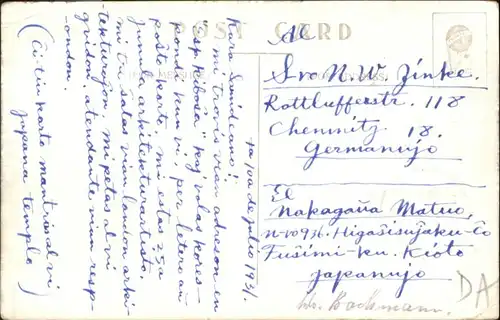 POST CARD
Al
S-ro N. W. Zinke.
Rottlufferstr. 118
Chemnitz 18.
Germanujo
El
Nakagaŭa Matuo,
N-ro 936. Higaŝisujaku-ĉo
Fuŝimi-ku. Kioto
Japanujo
DA
la 10a de julio 1931.
Kara Samideano!
mi trovis vian adreson en
"Esp. kiboŝa" kaj volas kores-
pondi kun vi, per letero aŭ
poŝtkarto. mi estas 25a
junula arkitekturartisto.
mi tre ŝatas vian landon arki-
tekturojn. mi petas al vi
gvidon. atendante vian resp-
ondon.
(Ĉi-tiu karto montras al vi
japana templo)